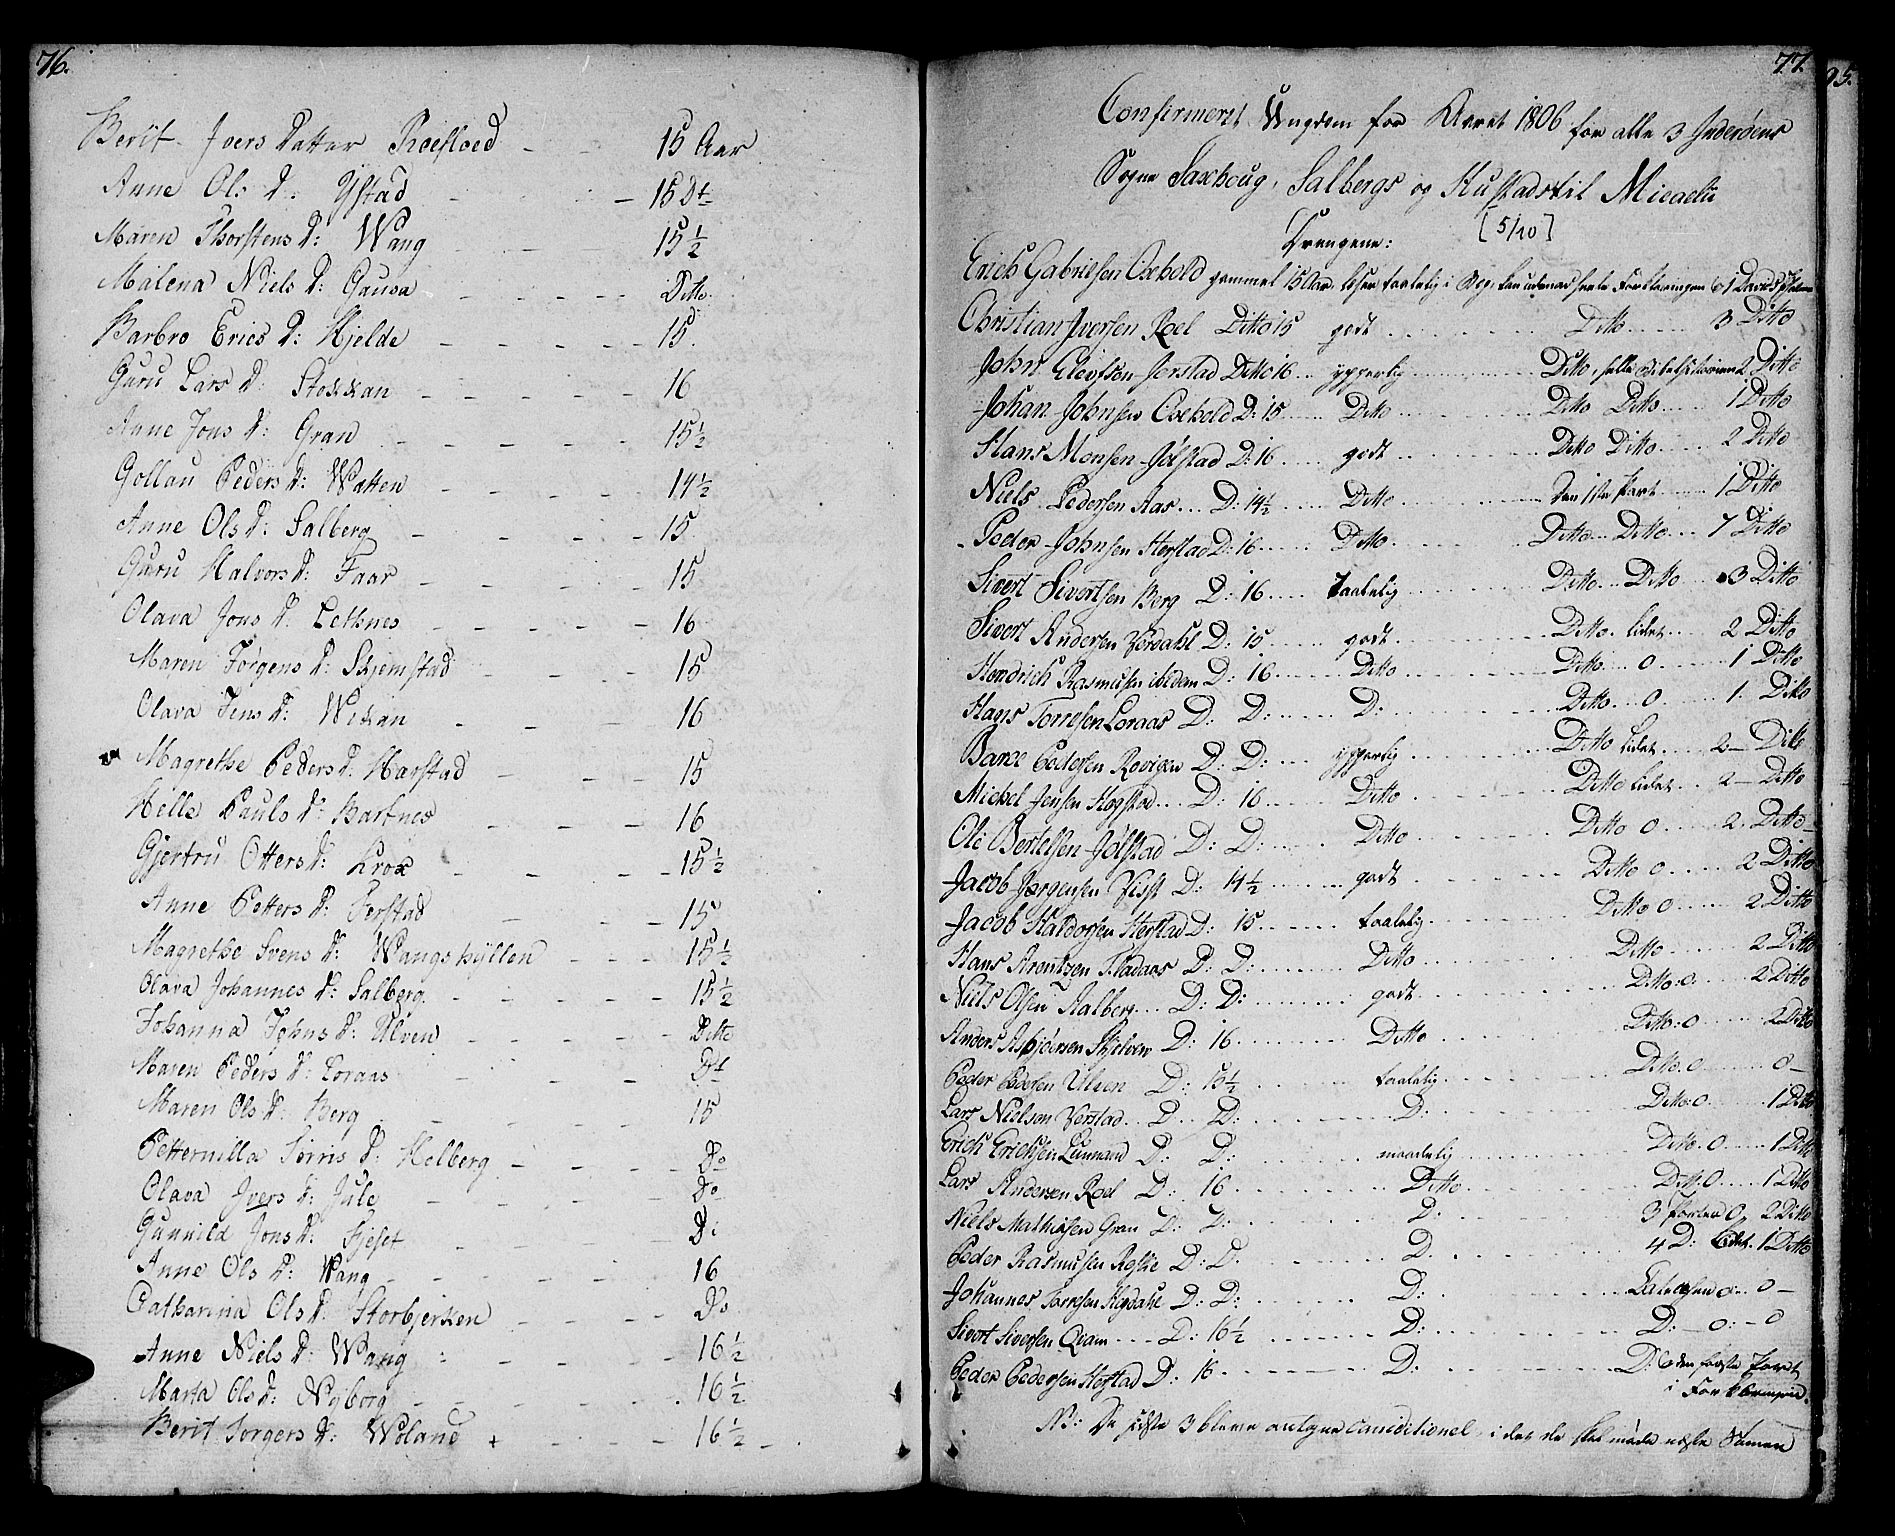 76.
Berit Joers Datter Roesloed - - 15 Aar
Anne Ol: D: Ystad - - 15 Dt
Maren Thorstens D: Wang - - 15 1/2
Malena Niels D: Gausa - - - - Ditto.
Barbro Erics D: Hjelde - - - - - 15.
Guru Lars D: Stokkan - - - - - 16
Anne Jons D: Gran - - - - - 15 1/2
Gollau Peders D: Watten - - - - 14 1/2
Anne Ols D: Salberg - - - - 15
Guru Halvors D: Faar - - - - - 15
Olava Jons D: Lethnes - - - - - 16
Maren Jørgens D: Skjemstad - - - - 15
Olava Jens D: Wikan - - - - 16
Magrethe Peders D: Harstad - - - 15
Helle Pauls D: Bartnes - - - - 16
Gjertru Otters D: Krox - - - - 15 1/2
Anne Petters D: Ferstad - - - 15
Magrethe Svens D: Wangshyllen - - - 15 1/2
Olava Johannes D: Salberg. - - - - 15 1/2
Johanna Johns D: Ulven - - - - Ditto
Maren Peders D: Loraas - - - Dt
Maren Ols D: Berg - - - - 15
Petternilla Sørris D: Holberg - - - - Do
Olava Ivers D: Jule - - - - Do
Gunnild Jons D: Sjeset - - - - D:
Anne Ols D: Wang - - - - - 16
Catharina Ols D: Storbjerken - - - - Do
Anne Niels D: Wang - - - - 16 1/2
Marta Ols D: Nyborg - - - - 16 1/2
Berit Jørgers D: Woland + - - - - 16 1/2 -
77.
95.
Confirmeret Ungdom for Aaret 1806 for alle 3 Inderøens
Sogne Saxhoug, Salbergs og Hustads til Micaelii
[5/10]
Drengene:
Erich Gabrielsen Oxebold gammel 15 Aar, læser taalelig i Bog, kan udenad heele Forklaringen 61 Davids Psalme
Christian Iversen Roel Ditto 15 godt Ditto 3 Ditto
John Elevsen Jerstad Ditto 16 ypperlig Ditto, heele Bibelhistorien 2 Ditto
Johan Johnsen Oxebold D: 15 Ditto Ditto Ditto 1 Ditto
Hans Monsen Jølstad D: 16 godt Ditto Ditto 2 Ditto
Niels Pedersen Aas D: 14 1/2 Ditto Den 1ste Part 1 Ditto
Peder Johnsen Herstad D: 16 Ditto Ditto Ditto 7 Ditto
Sivert Sivertsen Berg D: 16 taalelig Ditto Ditto 3 Ditto
Sivert Andersen Vordahl D: 15 godt Ditto lidet 2 Ditto
Hendrich Rasmusen ibidem D: 16 Ditto Ditto 0 1 Ditto
Hans Torresen Loraas D: D: D: Ditto 0 1 Ditto
Barxe Pedersen Rovigen D: D: ypperlig Ditto lidet 2 - Ditto
Michel Jensen Hogstad D: 16 Ditto Ditto lidet 2 - Ditto
Ole Bertelsen Jølstad D: D: Ditto Ditto 0 2 Ditto
Jacob Jørgensen Visst D: 14 1/2 godt Ditto 0 2 Ditto
Jacob Haldorsen Herstad D: 15 taalelig Ditto 0 2 Ditto
Hans Arentzen Fladaas D: D: Ditto Ditto 2 Ditto
Niels Olsen Aalberg D: D: godt Ditto: 0 2 Ditto
Anders Asbjørnsen Skjelven D: 16 Ditto Ditto: 0 2 Ditto
Peder Pedersen Ulven D: 15 1/2 taalelig Ditto: 0 0 -
Lars Nielsen Verstad D: D: D: Ditto: 0 1 Ditto
Erich Erichsen Lunnand D: D: maadelig Ditto. 0 1 Ditto
Lars Andersen Roel D: 16 Ditto Ditto 0 1 Ditto
Niels Mathiasen Gran D: D: D: 3 Parter 0 2 Ditto
Peder Rasmusen Roske D: D. D. 4 D: Lidet. 1 Ditto
Johannes Torresen Høgdahl D: D: D: 0 0 -
Sivert Siversen Qvam D: 16 1/2 D: D: 0: - 0
Peder Pedersen Hogstad D: 16 D: D: den første Part
i Forklaringen.
NB: De sidste 3 bleve antagne conditionel, i det de skal møde næste Sommer